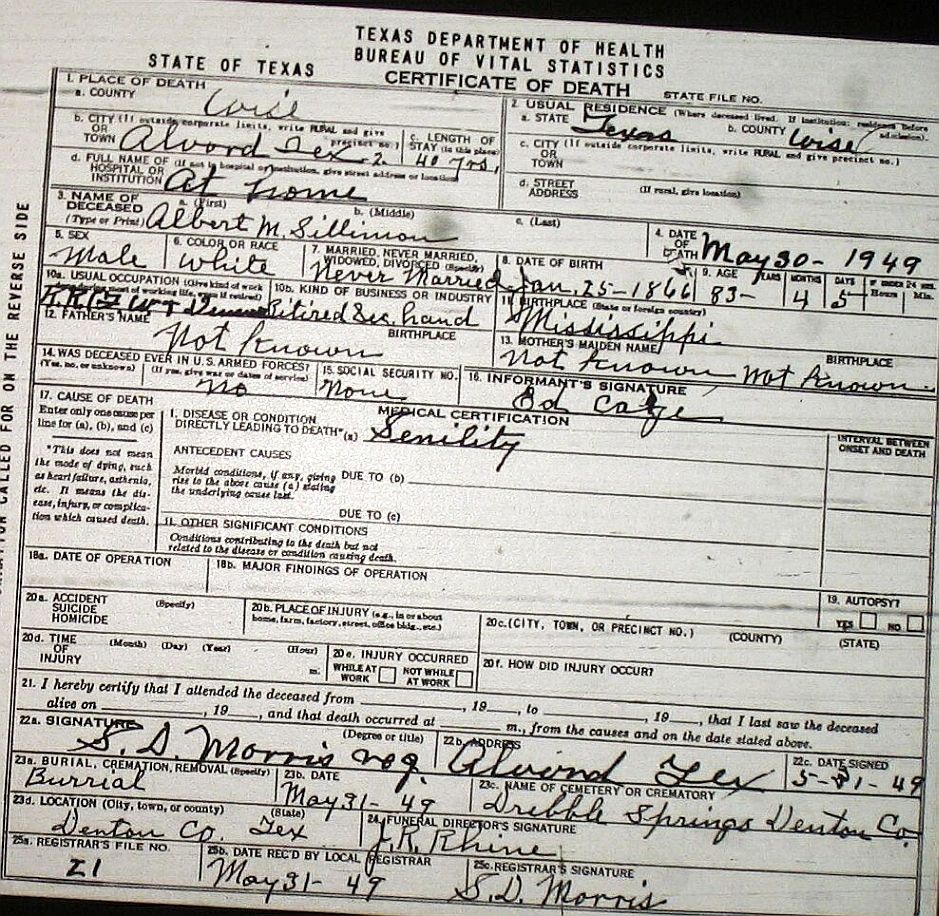 TEXAS DEPARTMENT OF HEALTH
BUREAU OF VITAL STATISTICS
STATE OF TEXAS
CERTIFICATE OF DEATH
STATE FILE NO.
1. PLACE OF DEATH
a. COUNTY Wise
2. USUAL RESIDENCE (Where deceased lived. If institution: residence before admission)
a. STATE Texas b. COUNTY Wise
b. CITY (If outside corporate limits, write RURAL and give precinct no.)
OR TOWN Alvord Tex 2
c. LENGTH OF STAY (in this place) 40 yrs,
c. CITY (If outside corporate limits, write RURAL and give precinct no.)
OR TOWN
d. FULL NAME OF (If not in hospital or institution, give street address or location)
HOSPITAL OR INSTITUTION At home
d. STREET ADDRESS (If rural, give location)
3. NAME OF DECEASED (Type or Print)
a. (First) b. (Middle) c. (Last)
Albert M. Sillimon
4. DATE OF DEATH May 30 - 1949
5. SEX Male
6. COLOR OR RACE White
7. MARRIED, NEVER MARRIED, WIDOWED, DIVORCED (Specify) Never Married
8. DATE OF BIRTH Jan. 25 - 1866
9. AGE YEARS 83- MONTHS 4 DAYS 5 IF UNDER 24 HRS. Hours Min.
10a. USUAL OCCUPATION (Give kind of work done during most of working life, even if retired)
10b. KIND OF BUSINESS OR INDUSTRY
Ritired Sec. hand
11. BIRTHPLACE (State or foreign country)
Mississippi
12. FATHER'S NAME BIRTHPLACE
Not Known
13. MOTHER'S MAIDEN NAME BIRTHPLACE
Not Known Not Known
14. WAS DECEASED EVER IN U.S. ARMED FORCES?
(Yes, no, or unknown) (If yes, give war or dates of service)
No
15. SOCIAL SECURITY NO.
None
16. INFORMANT'S SIGNATURE
Ed
17. CAUSE OF DEATH
Enter only one cause per line for (a), (b), and (c)
MEDICAL CERTIFICATION
INTERVAL BETWEEN ONSET AND DEATH
I. DISEASE OR CONDITION DIRECTLY LEADING TO DEATH* (a) Senility
*This does not mean the mode of dying, such as heart failure, asthenia, etc. It means the disease, injury, or complication which caused death.
ANTECEDENT CAUSES
Morbid conditions, if any, giving rise to the above cause (a) stating the underlying cause last.
DUE TO (b)
DUE TO (c)
II. OTHER SIGNIFICANT CONDITIONS
Conditions contributing to the death but not related to the disease or condition causing death.
18a. DATE OF OPERATION
18b. MAJOR FINDINGS OF OPERATION
19. AUTOPSY?
YES NO
20a. ACCIDENT SUICIDE HOMICIDE (Specify)
20b. PLACE OF INJURY (e.g., in or about home, farm, factory, street, office bldg., etc.)
20c. (CITY, TOWN, OR PRECINCT NO.) (COUNTY) (STATE)
20d. TIME OF INJURY (Month) (Day) (Year) (Hour) m.
20e. INJURY OCCURRED
WHILE AT WORK NOT WHILE AT WORK
20f. HOW DID INJURY OCCUR?
21. I hereby certify that I attended the deceased from , 19 , to , 19 , that I last saw the deceased
alive on , 19 , and that death occurred at m., from the causes and on the date stated above.
22a. SIGNATURE (Degree or title)
S. D. Morris reg.
22b. ADDRESS
Alvord Tex
22c. DATE SIGNED
5-31-49
23a. BURIAL, CREMATION, REMOVAL (Specify)
Burrial
23b. DATE
May 31 - 49
23c. NAME OF CEMETERY OR CREMATORY
Dribble Springs Denton Co.
23d. LOCATION (City, town, or county) (State)
Denton Co. Tex
24. FUNERAL DIRECTOR'S SIGNATURE
J. R. Rhine
25a. REGISTRAR'S FILE NO.
21
25b. DATE REC'D BY LOCAL REGISTRAR
May 31 - 49
25c. REGISTRAR'S SIGNATURE
S. D. Morris
CALLED FOR ON THE REVERSE SIDE